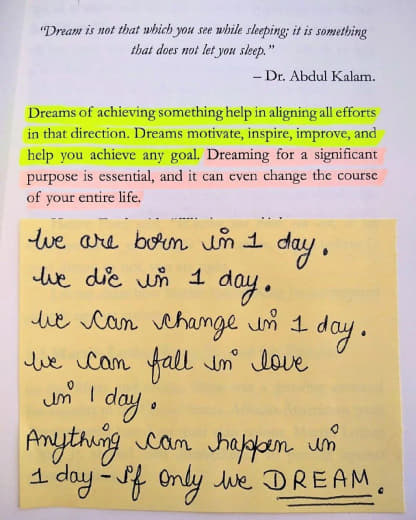 "Dream is not that which you see while sleeping; it is something
that does not let you sleep."
– Dr. Abdul Kalam.
Dreams of achieving something help in aligning all efforts
in that direction. Dreams motivate, inspire, improve, and
help you achieve any goal. Dreaming for a significant
purpose is essential, and it can even change the course
of your entire life.
We are born in 1 day.
We die in 1 day.
We can change in 1 day.
We can fall in love
in 1 day.
Anything can happen in
1 day - If only we DREAM.